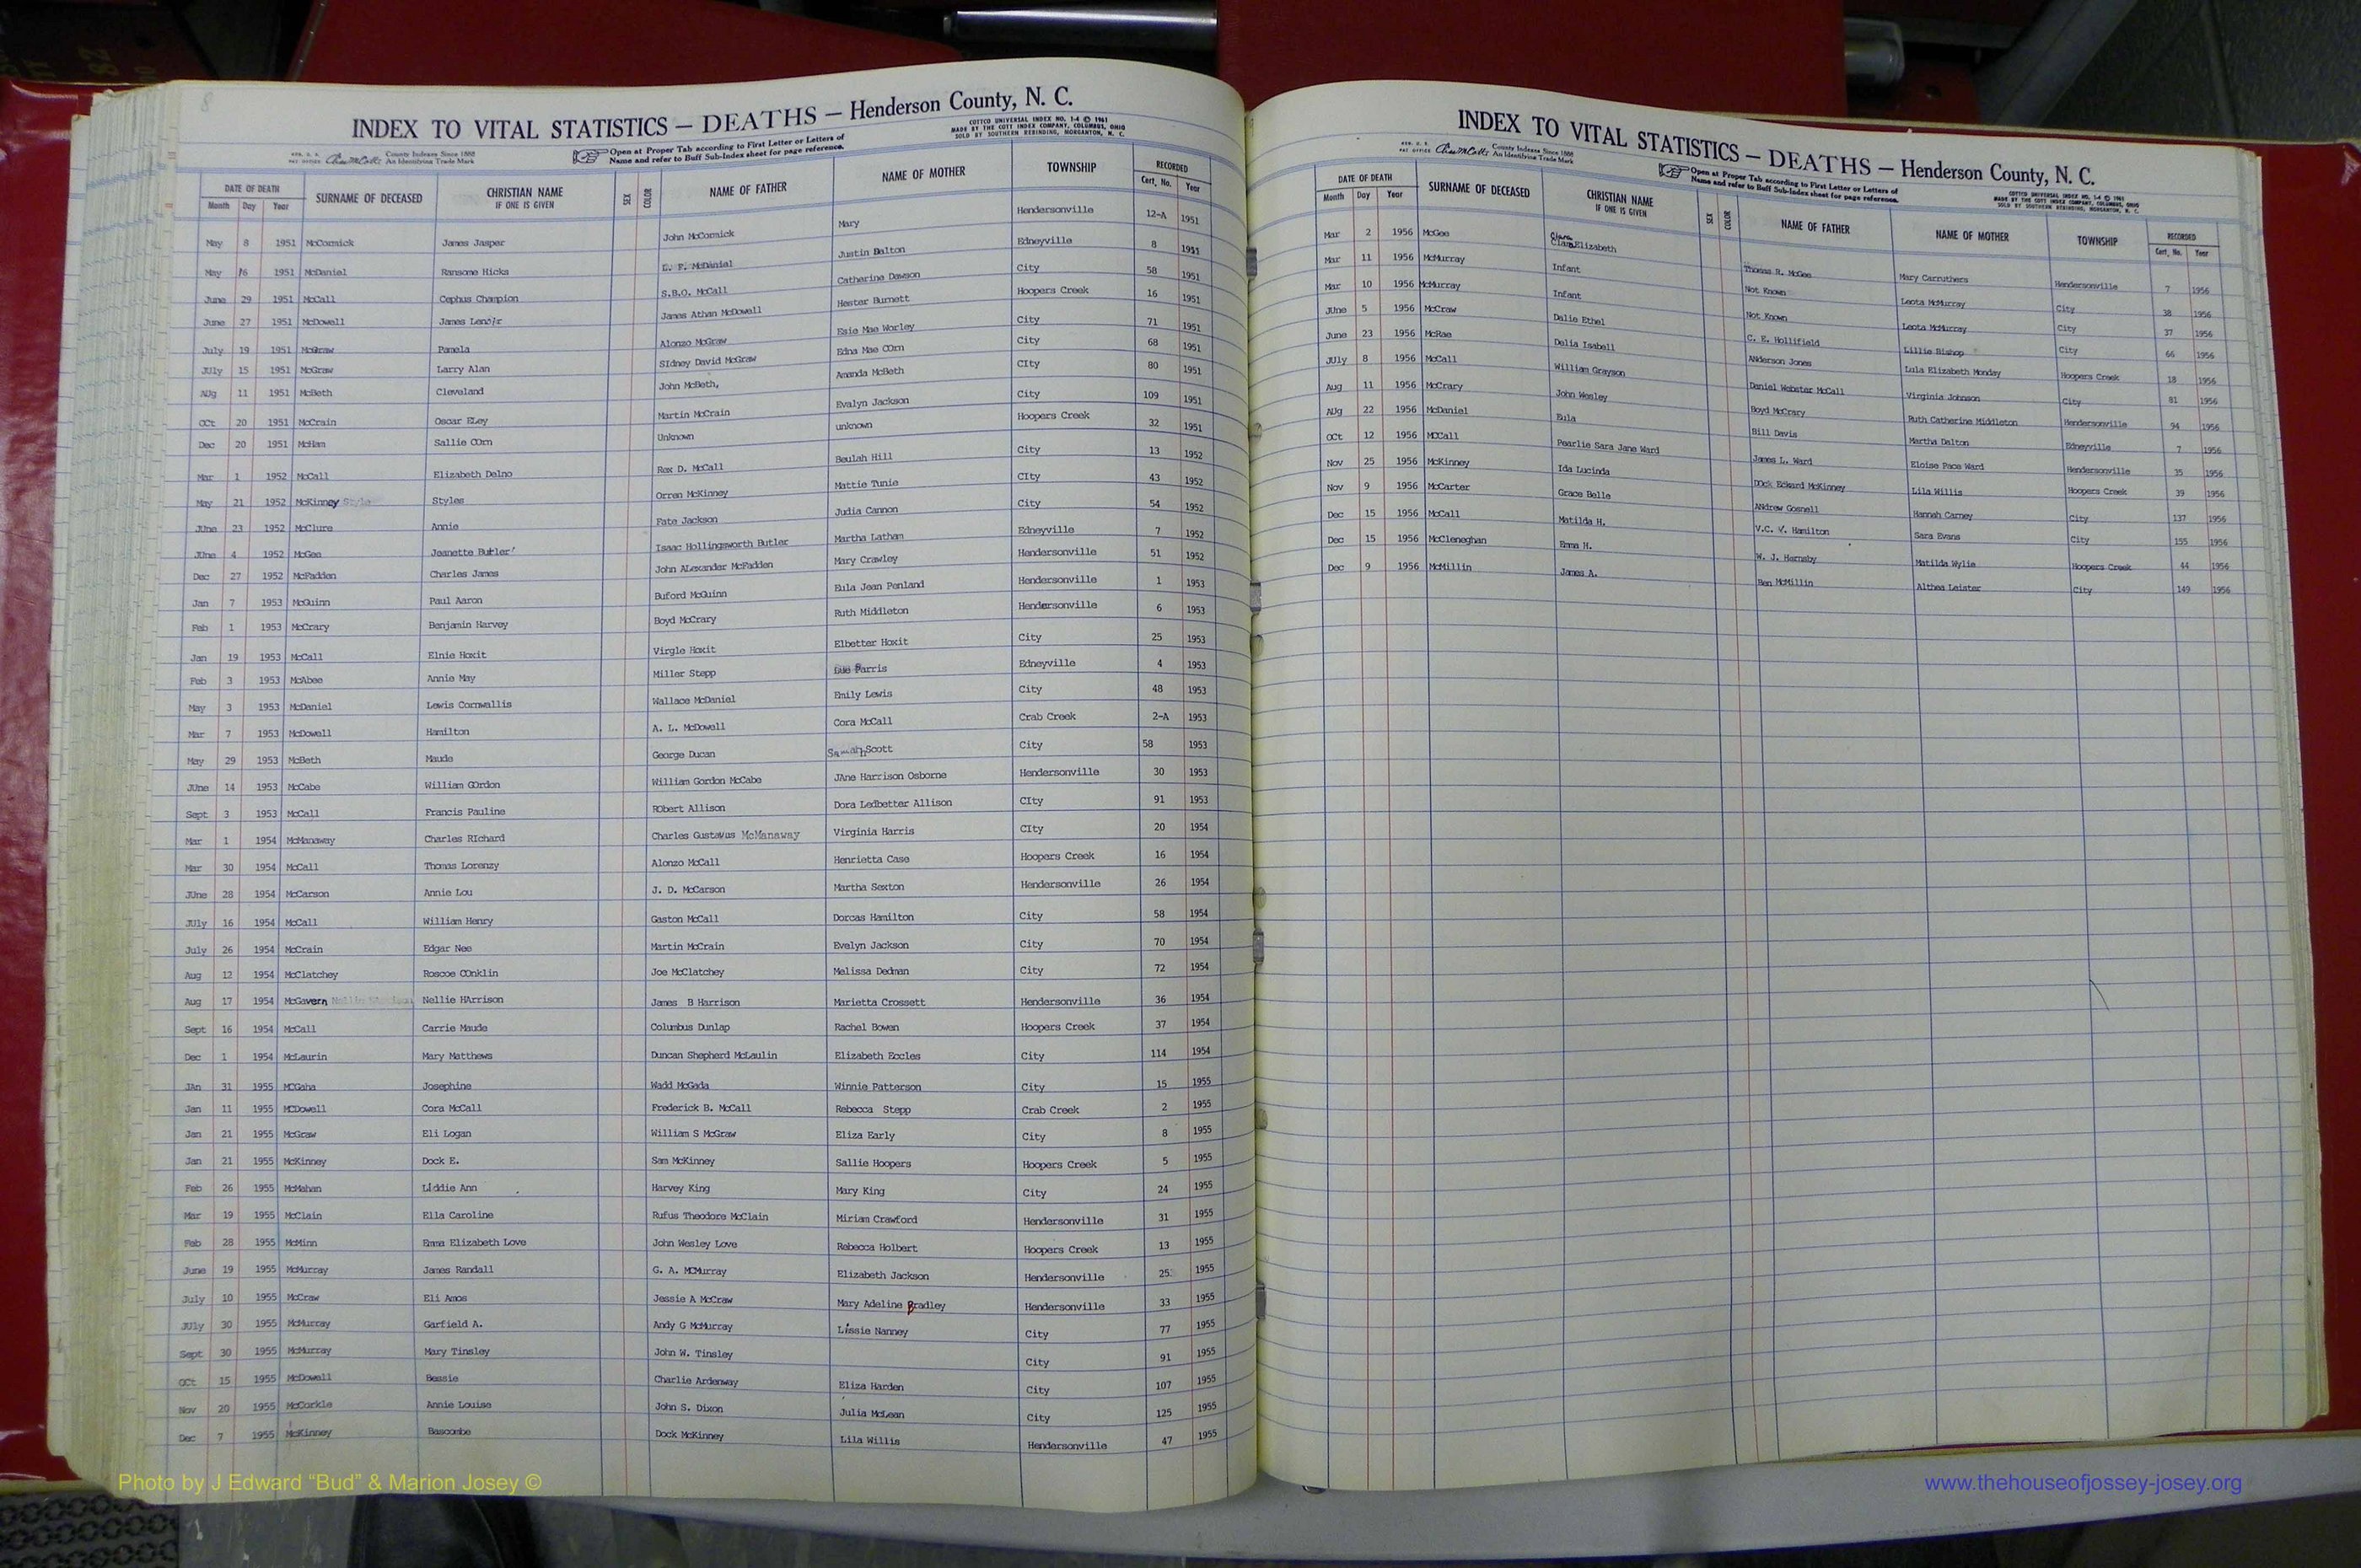 8
INDEX TO VITAL STATISTICS — DEATHS — Henderson County, N. C.
COTTCO UNIVERSAL INDEX NO. 1-4 © 1961
MADE BY THE COTT INDEX COMPANY, COLUMBUS, OHIO
SOLD BY SOUTHERN REBINDING, MORGANTON, N. C.
County Indexes Since 1888
An Identifying Trade Mark
Open at Proper Tab according to First Letter or Letters of
Name and refer to Buff Sub-Index sheet for page reference.
DATE OF DEATH SURNAME OF DECEASED CHRISTIAN NAME IF ONE IS GIVEN SEX COLOR NAME OF FATHER NAME OF MOTHER TOWNSHIP RECORDED
Month Day Year Cert. No. Year
May 8 1951 McCormick James Jasper John McCormick Mary Hendersonville 12-A 1951
May 16 1951 McDaniel Ransome Hicks D. F. McDaniel Justin Dalton Edneyville 8 1951
June 29 1951 McCall Cephus Champion S.B.O. McCall Catherine Dawson City 58 1951
June 27 1951 McDowell James Lenoir James Athan McDowell Hester Burnett Hoopers Creek 16 1951
July 19 1951 McGraw Pamela Alonzo McGraw Esie Mae Worley City 71 1951
JUly 15 1951 McGraw Larry Alan SIdney David McGraw Edna Mae COrn City 68 1951
AUg 11 1951 McBeth Cleveland John McBeth, Amanda McBeth CIty 80 1951
OCt 20 1951 McCrain Oscar ELey Martin McCrain Evalyn Jackson City 109 1951
Dec 20 1951 McHam Sallie COrn Unknown unknown Hoopers Creek 32 1951
Mar 1 1952 McCall Elizabeth Delno Rex D. McCall Beulah Hill City 13 1952
May 21 1952 McKinney Style Styles Orren McKinney Mattie Tunie CIty 43 1952
JUne 23 1952 McClure Annie Fate Jackson Judia Cannon City 54 1952
JUne 4 1952 McGee Jeanette Butler Isaac Hollingsworth Butler Martha Latham Edneyville 7 1952
Dec 27 1952 McFadden Charles James John ALexander McFadden Mary Crawley Hendersonville 51 1952
Jan 7 1953 McGuinn Paul Aaron Buford McGuinn Eula Jean Penland Hendersonville 1 1953
Feb 1 1953 McCrary Benjamin Harvey Boyd McCrary Ruth Middleton Hendersonville 6 1953
Jan 19 1953 McCall Elnie Hoxit Virgle Hoxit Elbetter Hoxit City 25 1953
Feb 3 1953 McAbee Annie May Miller Stepp Parris Edneyville 4 1953
May 3 1953 McDaniel Lewis Cornwallis Wallace McDaniel Emily Lewis City 48 1953
Mar 7 1953 McDowell Hamilton A. L. McDowell Cora McCall Crab Creek 2-A 1953
May 29 1953 McBeth Maude George Ducan Scott City 58 1953
JUne 14 1953 McCabe William GOrdon William Gordon McCabe JAne Harrison Osborne Hendersonville 30 1953
Sept 3 1953 McCall Francis Pauline RObert Allison Dora Ledbetter Allison CIty 91 1953
Mar 1 1954 McManaway Charles RIchard Charles Gustavus McManaway Virginia Harris CIty 20 1954
Mar 30 1954 McCall Thomas Lorenzy Alonzo McCall Henrietta Case Hoopers Creek 16 1954
JUne 28 1954 McCarson Annie Lou J. D. McCarson Martha Sexton Hendersonville 26 1954
JUly 16 1954 McCall William Henry Gaston McCall Dorcas Hamilton City 58 1954
July 26 1954 McCrain Edgar Nee Martin McCrain Evelyn Jackson City 70 1954
Aug 12 1954 McClatchey Roscoe COnklin Joe McClatchey Melissa Dedman City 72 1954
Aug 17 1954 McGavern Nellie HArrison James B Harrison Marietta Crossett Hendersonville 36 1954
Sept 16 1954 McCall Carrie Maude Columbus Dunlap Rachel Bowen Hoopers Creek 37 1954
Dec 1 1954 McLaurin Mary Matthews Duncan Shepherd McLaulin Elizabeth Eccles City 114 1954
JAn 31 1955 MCGaha Josephine Wadd McGada Winnie Patterson City 15 1955
Jan 11 1955 MCDowell Cora McCall Frederick B. McCall Rebecca Stepp Crab Creek 2 1955
Jan 21 1955 McGraw Eli Logan William S McGraw Eliza Early City 8 1955
Jan 21 1955 McKinney Dock E. Sam McKinney Sallie Hoopers Hoopers Creek 5 1955
Feb 26 1955 McMahan Liddie Ann Harvey King Mary King City 24 1955
Mar 19 1955 McClain Ella Caroline Rufus Theodore McClain Miriam Crawford Hendersonville 31 1955
Feb 28 1955 McMinn Emma Elizabeth Love John Wesley Love Rebecca Holbert Hoopers Creek 13 1955
June 19 1955 McMurray James Randall G. A. MCMurray Elizabeth Jackson Hendersonville 25 1955
July 10 1955 McCraw Eli Amos Jessie A McCraw Mary Adeline Bradley Hendersonville 33 1955
JUly 30 1955 McMurray Garfield A. Andy G McMurray Lissie Nanney City 77 1955
Sept 30 1955 McMurray Mary Tinsley John W. Tinsley City 91 1955
OCt 15 1955 McDowell Bessie Charlie Ardenway Eliza Harden City 107 1955
Nov 20 1955 McCorkle Annie Louise John S. Dixon Julia McLean City 125 1955
Dec 7 1955 McKinney Bascombe Dock McKinney Lila Willis Hendersonville 47 1955
INDEX TO VITAL STATISTICS — DEATHS — Henderson County, N. C.
County Indexes Since 1888
An Identifying Trade Mark
Open at Proper Tab according to First Letter or Letters of
Name and refer to Buff Sub-Index sheet for page reference.
COTTCO UNIVERSAL INDEX NO. 1-4 © 1961
MADE BY THE COTT INDEX COMPANY, COLUMBUS, OHIO
SOLD BY SOUTHERN REBINDING, MORGANTON, N. C.
DATE OF DEATH SURNAME OF DECEASED CHRISTIAN NAME IF ONE IS GIVEN SEX COLOR NAME OF FATHER NAME OF MOTHER TOWNSHIP RECORDED
Month Day Year Cert. No. Year
Mar 2 1956 McGee Clara Elizabeth Thomas R. McGee Mary Carruthers Hendersonville 7 1956
Mar 11 1956 McMurray Infant Not Known Leota McMurray City 38 1956
Mar 10 1956 McMurray Infant Not Known Leota McMurray City 37 1956
JUne 5 1956 McCraw Dalie Ethel C. E. Hollifield Lillie Bishop City 66 1956
June 23 1956 McRae Delia Isabell ANderson Jones Lula Elizabeth Monday Hoopers Creek 18 1956
JUly 8 1956 McCall William Grayson Daniel Webster McCall Virginia Johnson City 81 1956
Aug 11 1956 McCrary John Wesley Boyd McCrary Ruth Catherine Middleton Hendersonville 94 1956
AUg 22 1956 McDaniel Eula Bill Davis Martha Dalton Edneyville 7 1956
OCt 12 1956 MCCall Pearlie Sara Jane Ward James L. Ward Eloise Pace Ward Hendersonville 35 1956
Nov 25 1956 McKinney Ida Lucinda DOck Edward McKinney Lila Willis Hoopers Creek 39 1956
Nov 9 1956 McCarter Grace Belle ANdrew Gosnell Hannah Carney City 137 1956
Dec 15 1956 McCall Matilda H. V.C. V. Hamilton Sara Evans City 155 1956
Dec 15 1956 McCleneghan Emma H. W. J. Hornsby Matilda Wylie Hoopers Creek 44 1956
Dec 9 1956 McMillin James A. Ben McMillin Althea Leister City 149 1956
Photo by J Edward “Bud” & Marion Josey ©
www.thehouseofjossey-josey.org